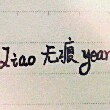 Liao 无痕 year